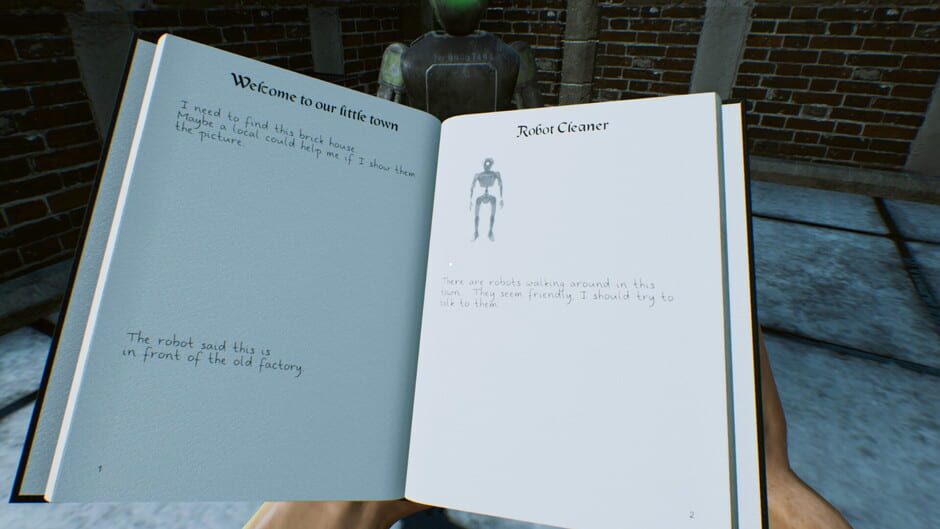 Welcome to our little town
I need to find this brick house.
Maybe a local could help me if I show them
the picture.
The robot said this is
in front of the old factory.
1
Robot Cleaner
There are robots walking around in this
town. They seem friendly, I should try to
talk to them.
2